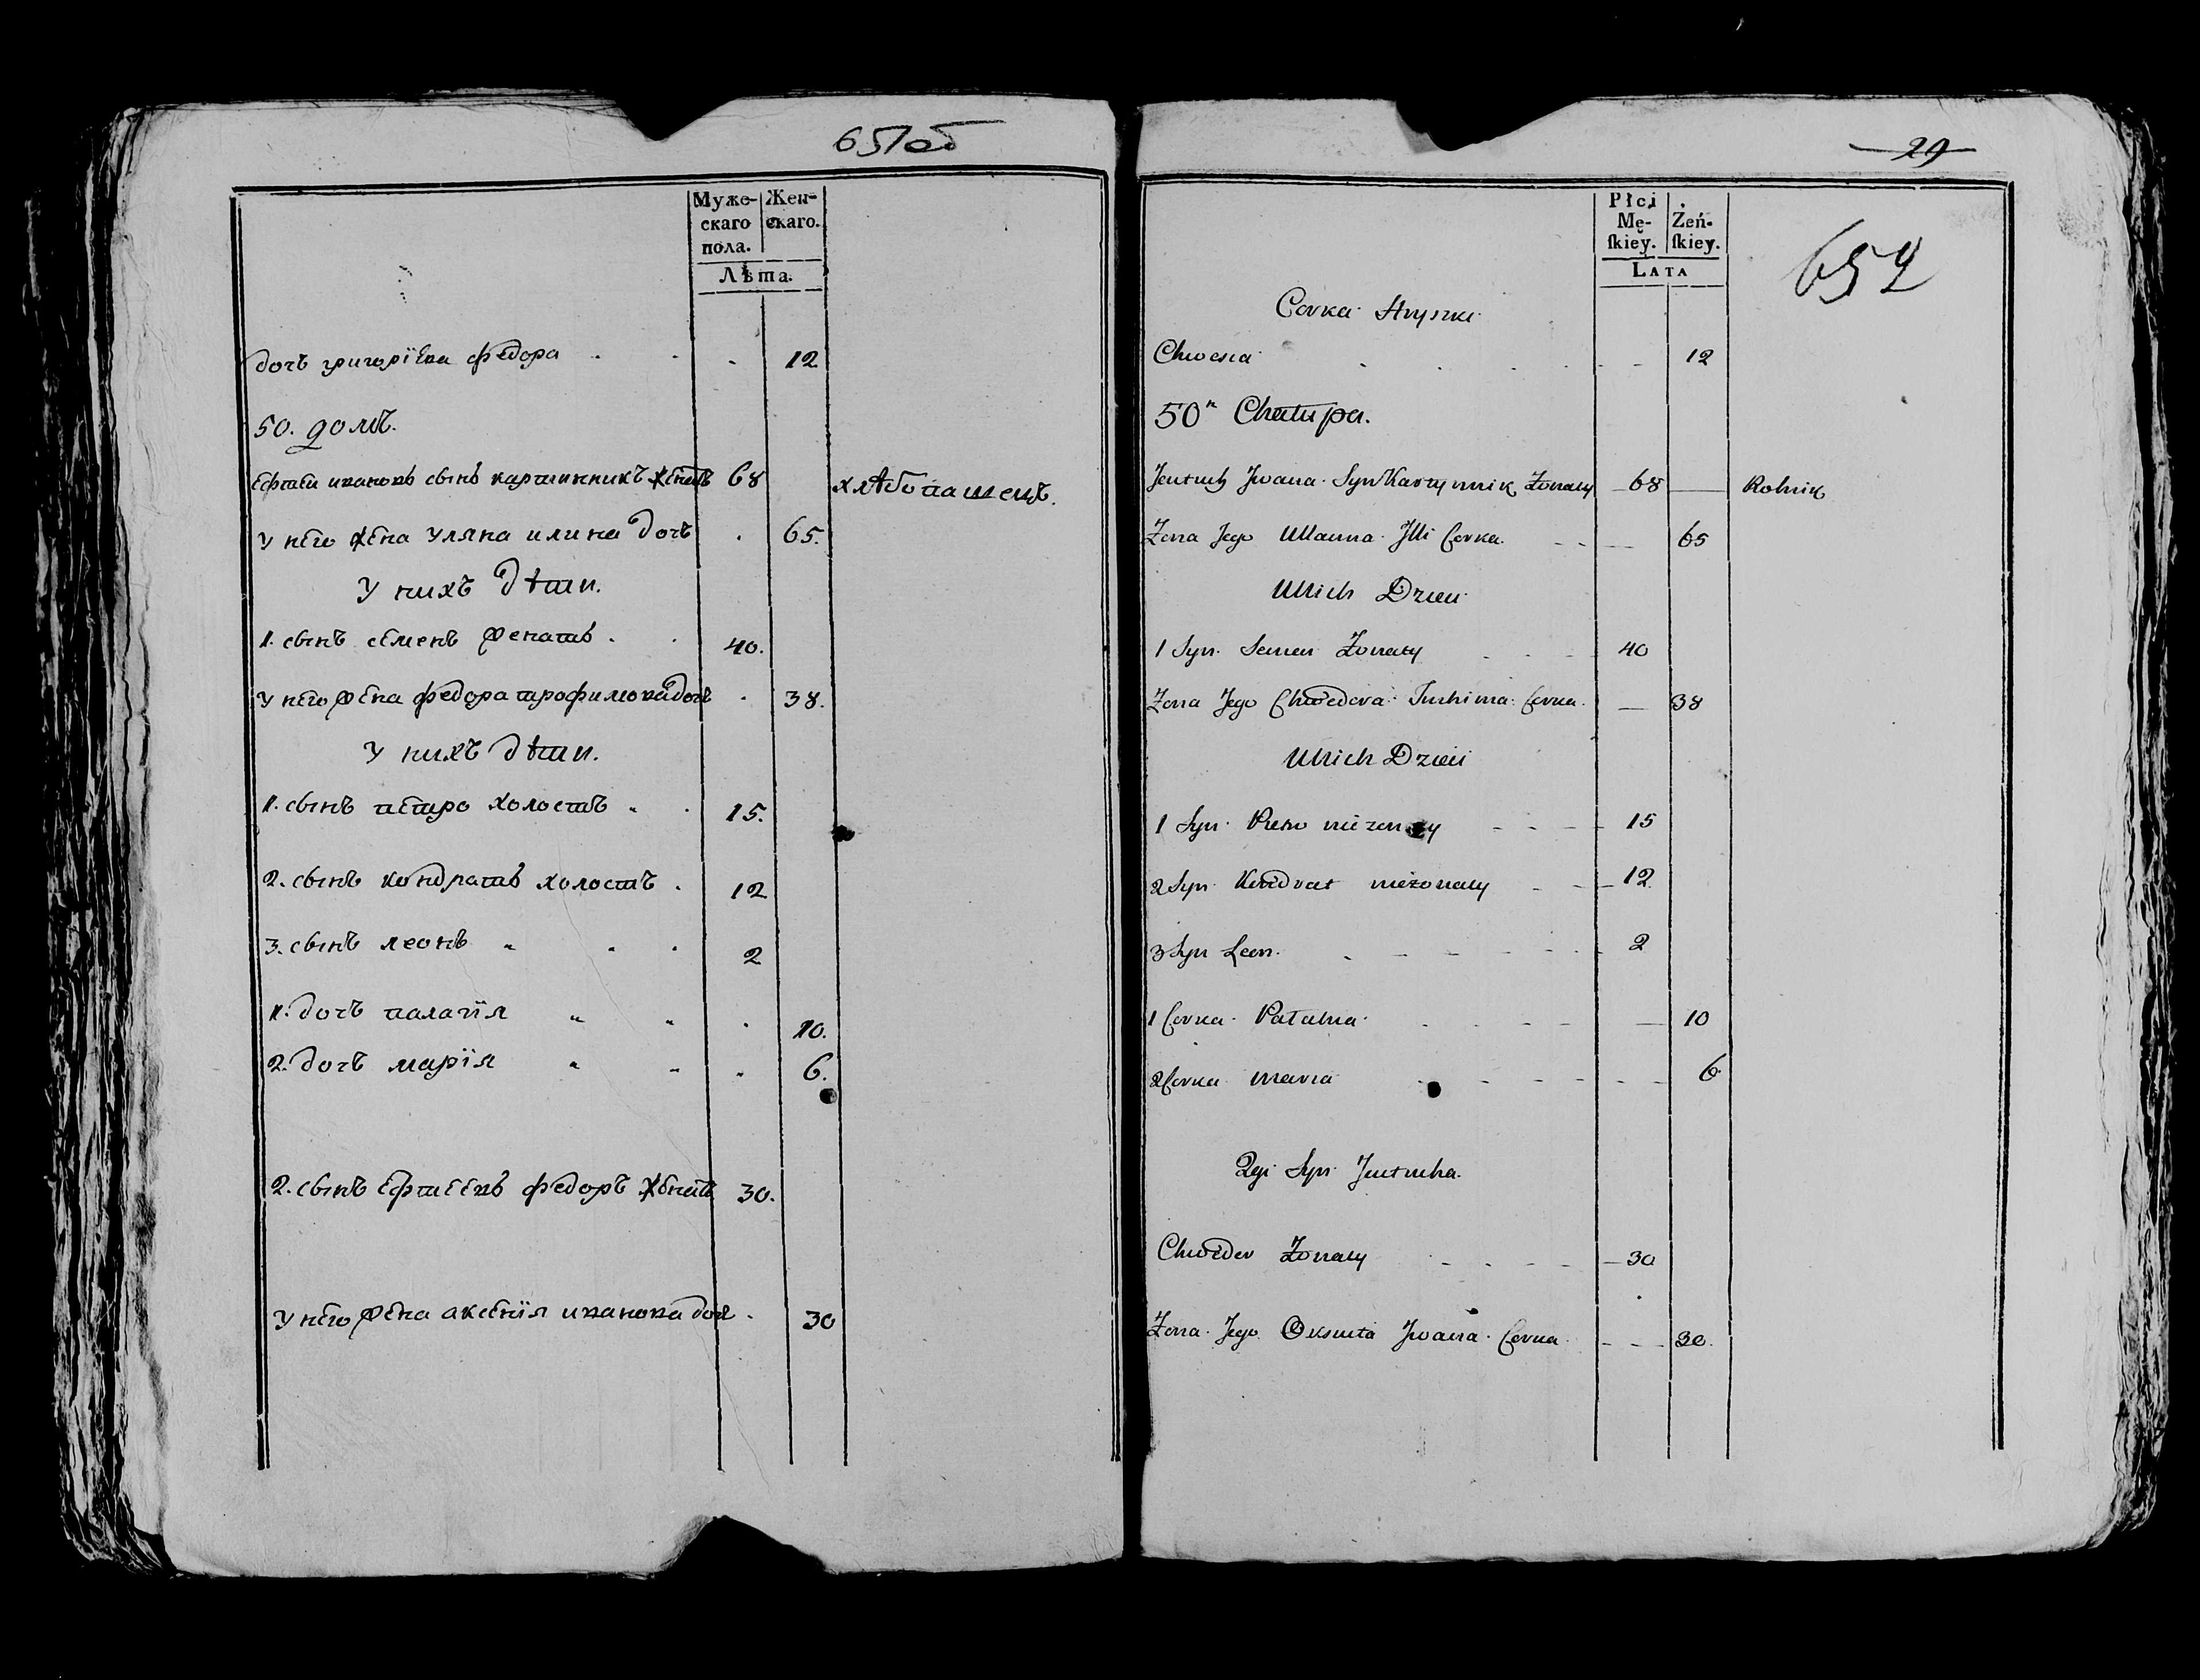 651об
Муже- Жен-
скаго скаго.
пола.
Лѣта.
дочъ григорїева федора 12
50. домъ.
Ефтеи ивановъ сынъ картинникъ женатъ 68 хлѣбопашецъ.
у него жена уляна илина дочъ 65.
у нихъ дѣти.
1. сынъ семенъ женатъ 40.
у него жена федора трофимова дочъ 38.
у нихъ дѣти.
1. сынъ петро холостъ 15.
2. сынъ кондратъ холостъ 12
3. сынъ леонъ 2
1. дочъ палагїя 10.
2. дочъ марїя 6.
2. сынъ Ефтеевъ федоръ женатъ 30.
у него жена аксенїя иванова дочъ 30
29
Płci
Mę- Żeń-
ſkiey. ſkiey.
LATA
652
Corka Hryszki
Chwesia 12
50ª Chałupa.
Jwana Syn Żonaty 68 Rolnik
Żona Jego Ullanna Jlli Corka 65
U Nich Dzieci
1 Syn Semen Żonaty 40
Żona Jego Chwedora Corka 38
U Nich Dzieci
1 Syn Petro nieżonaty 15
2 Syn Kondrat nieżonaty 12
3 Syn Leon 2
1 Corka 10
2 Corka Maria 6
2gi Syn Jewtucha
Chwedor Żonaty 30
Żona Jego Jwana Corka 30